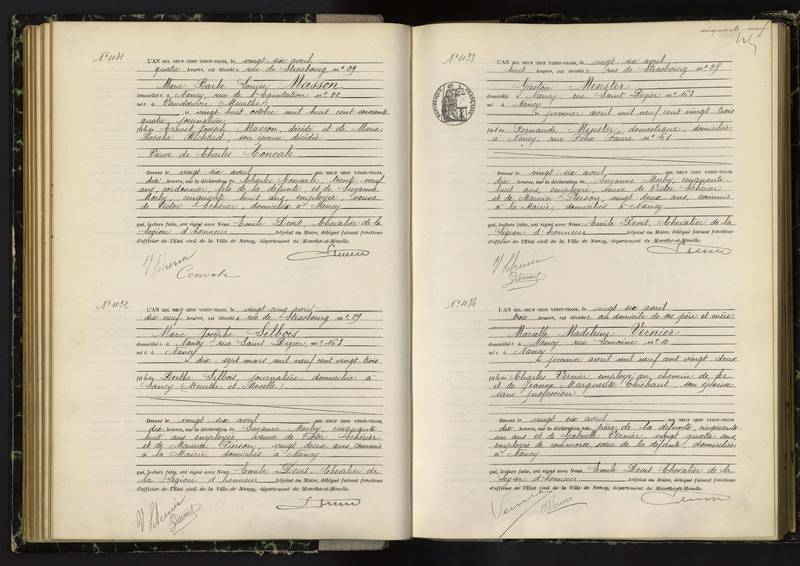 N° 1031
L'AN MIL NEUF CENT VINGT-TROIS, le vingt six avril
quatre heures, est décédée rue de Strasbourg n° 29
Marie Barbe Louise Masson
domiciliée à Nancy, rue de
née à Vandoeuvre (Meurthe)
le vingt huit octobre mil huit cent soixante
quatre, journalière
fille de Ernest Joseph Masson, décédé et de Marie
Rosalie Richard, son épouse décédée
Veuve de Charles
Dressé le vingt six avril MIL NEUF CENT VINGT-TROIS,
dix heures, sur la déclaration de Charles trente neuf
ans, cordonnier, fils de la défunte, et de Suzanne
Morby, cinquante huit ans, employée, veuve
de Victor domiciliés à Nancy
qui, lecture faite, ont signé avec Nous Emile Devit, Chevalier de la
Légion d'honneur Adjoint au Maire, délégué faisant fonctions
d'officier de l'Etat civil de la Ville de Nancy, département de Meurthe-et-Moselle.
N° 1032
L'AN MIL NEUF CENT VINGT-TROIS, le vingt cinq avril
dix neuf heures, est décédée rue de Strasbourg n° 29
Marie Josèphe Selbois
domiciliée à Nancy rue Saint Dizier n° 163
née à Nancy
le dix sept mars mil neuf cent vingt trois
fille de Berthe Selbois, journalière domiciliée à
Nancy (Meurthe et Moselle)
Dressé le vingt six avril MIL NEUF CENT VINGT-TROIS,
dix heures, sur la déclaration de Suzanne Morby, cinquante
huit ans employée, veuve de Victor
et de Maurice Pierson, vingt deux ans, commis
à la Mairie domiciliés à Nancy
qui, lecture faite, ont signé avec Nous Emile Devit, Chevalier de
la Légion d'honneur Adjoint au Maire, délégué faisant fonctions
d'officier de l'Etat civil de la Ville de Nancy, département de Meurthe-et-Moselle.
cinquante neuf
N° 1033
L'AN MIL NEUF CENT VINGT-TROIS, le vingt six avril
huit heures, est décédé rue de Strasbourg n° 29
Gaston Menster
domicilié à Nancy, rue Saint Dizier n° 163
né à Nancy
le premier avril mil neuf cent vingt trois
fils de Fernande Menster, domestique, domiciliée
à Nancy, rue Félix Faure n° 61
Dressé le vingt six avril MIL NEUF CENT VINGT-TROIS,
dix heures, sur la déclaration de Suzanne Morby, cinquante
huit ans, employée, veuve de Victor
et de Maurice Pierson, vingt deux ans, commis
à la Mairie, domiciliés à Nancy
qui, lecture faite, ont signé avec Nous Emile Devit, Chevalier de la
Légion d'honneur Adjoint au Maire, délégué faisant fonctions
d'officier de l'Etat civil de la Ville de Nancy, département de Meurthe-et-Moselle.
N° 1034
L'AN MIL NEUF CENT VINGT-TROIS, le vingt six avril
trois heures, est décédée au domicile de ses père et mère
Marcelle Madeleine Vernier
domiciliée à Nancy rue Lemoine n° 10
née à Nancy
le premier avril mil neuf cent vingt deux
fille de Charles Vernier, employé au chemin de fer
et de Jeanne Marguerite Thiébaut, son épouse
sans profession
Dressé le vingt six avril MIL NEUF CENT VINGT-TROIS,
dix heures, sur la déclaration du père de la défunte, cinquante
un ans et de Gabrielle Vernier, vingt quatre ans,
employée de commerce, soeur de la défunte, domiciliés
à Nancy
qui, lecture faite, ont signé avec Nous Emile Devit, Chevalier de la
Légion d'honneur Adjoint au Maire, délégué faisant fonctions
d'officier de l'Etat civil de la Ville de Nancy, département de Meurthe-et-Moselle.